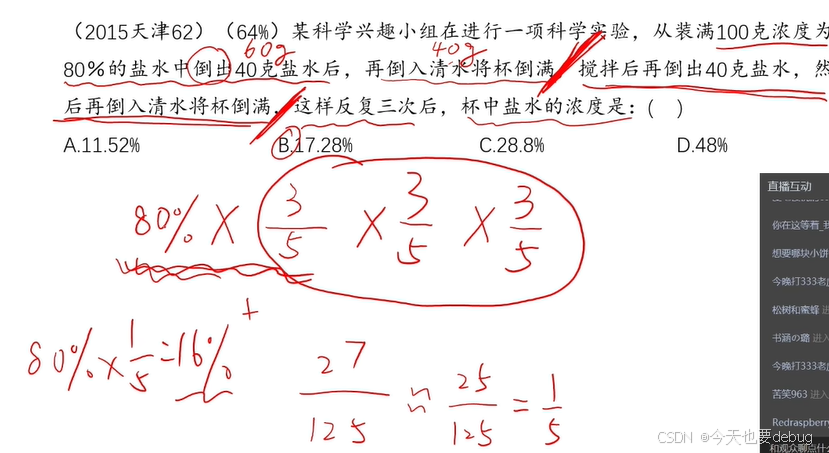 (2015天津62)(64%)某科学兴趣小组在进行一项科学实验,从装满100克浓度为
60g 40g
80%的盐水中倒出40克盐水后,再倒入清水将杯倒满,搅拌后再倒出40克盐水,然
后再倒入清水将杯倒满,这样反复三次后,杯中盐水的浓度是:( )
A.11.52% B.17.28% C.28.8% D.48%
直播互动
你在这等着_我
想要哪块小饼
今晚打333老虎
松树和蜜蜂 进
书涵の璐 进入
今晚打333老虎
苦笑963 进入
Redraspberry
和观众聊点什么
80% × 3/5 × 3/5 × 3/5
80% × 1/5 = 16% +
27/125 ≈ 25/125 = 1/5
CSDN @今天也要debug